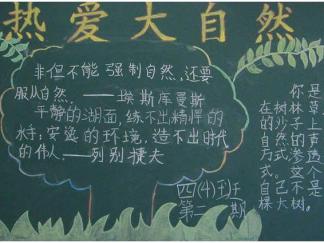 热爱大自然
非但不能强制自然,还要
服从自然。——埃斯库曼斯
平静的湖面,练不出精悍的
水手;安逸的环境,造不出时代
的伟人。——列别捷夫
四(4)班
第二期
你是
在树林草
的沙子上
自然的声
方式渗透
式。这个
自己不是
棵大树。